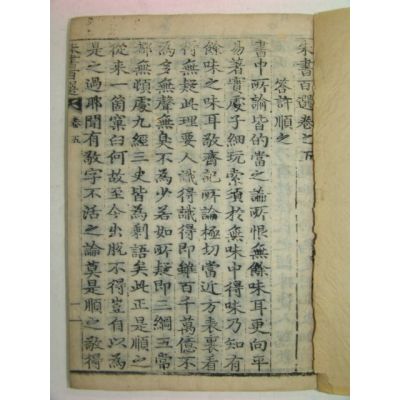 朱書百選卷之五
答許順之
書中所諭皆的當之論所恨無餘味耳更向平
易著實處子細玩索須於無味中得味乃知有
餘味之味耳敬齋記所論極切當近方表裏看
得無疑此理要人識得識得即雖百千萬億不
爲多無聲無臭不爲少若如所疑即三綱五常
都無頓處九經三史皆爲剩語矣此正是順之
從來一箇窠臼何故至今出脫不得豈有以爲
是之過耶聞有敬字不活之論莫是順之敬得
朱書百選
卷五
一